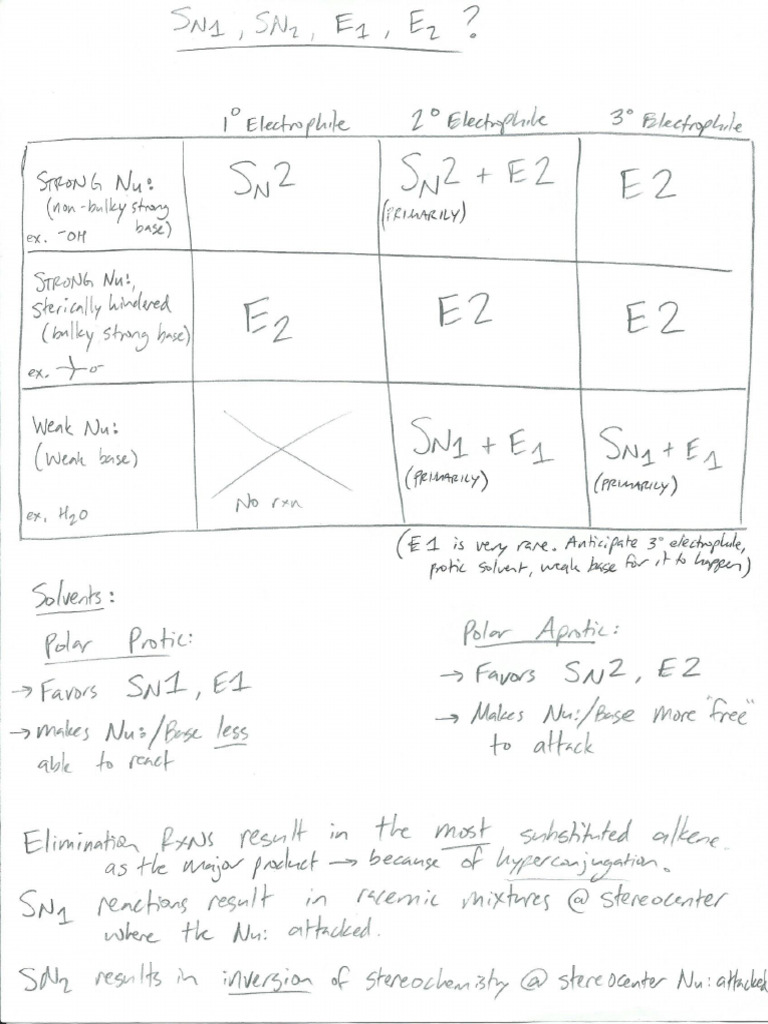 SN1, SN2, E1, E2 ?
1° Electrophile 2° Electrophile 3° Electrophile
STRONG Nu:
(non-bulky strong
base)
ex. ⁻OH
SN2
SN2 + E2
(PRIMARILY)
E2
STRONG Nu:,
sterically hindered
(bulky strong base)
ex. O⁻
E2
E2
E2
Weak Nu:
(Weak base)
ex. H2O
No rxn
SN1 + E1
(PRIMARILY)
SN1 + E1
(PRIMARILY)
(E1 is very rare. Anticipate 3° electrophile,
protic solvent, weak base for it to happen)
Solvents:
Polar Protic:
→ Favors SN1, E1
→ makes Nu:/Base less
able to react
Polar Aprotic:
→ Favors SN2, E2
→ Makes Nu:/Base more "free"
to attack
Elimination RXNs result in the most substituted alkene
as the major product → because of hyperconjugation.
SN1 reactions result in racemic mixtures @ stereocenter
where the Nu: attacked.
SN2 results in inversion of stereochemistry @ stereocenter Nu: attacked